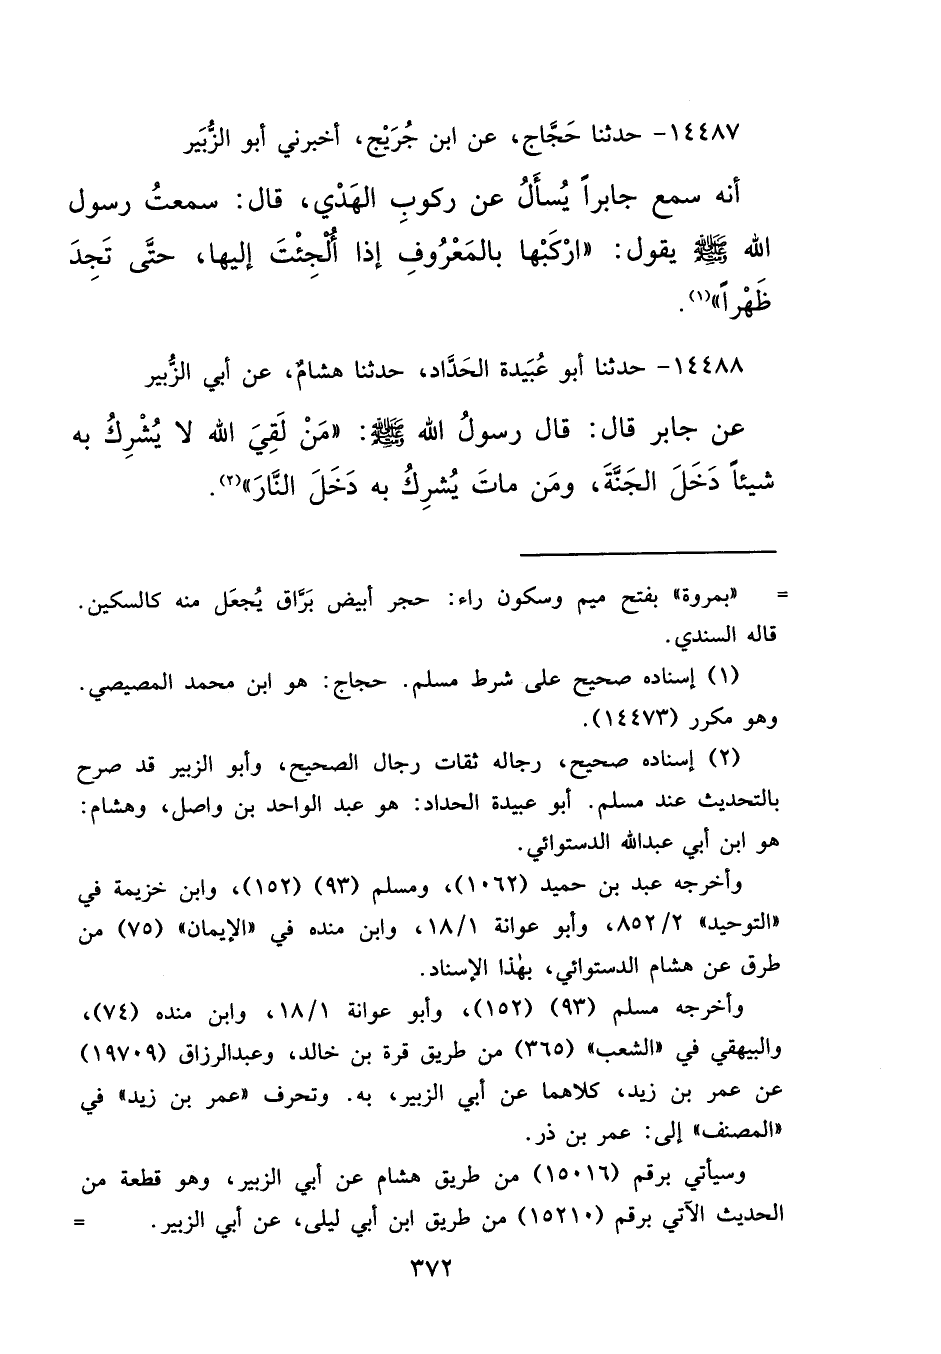 ١٤٤٨٧- حدثنا حَجَّاج، عن ابن جُرَيْج، أخبرني أبو الزُّبَير
أنه سمع جابراً يُسأَلُ عن ركوبِ الهَدْي، قال: سمعتُ رسول
الله ﷺ يقول: «ارْكَبْها بالمَعْرُوفِ إذا أُلْجِئْتَ إليها، حتَّى تَجِدَ
ظَهْراً»(١).
١٤٤٨٨- حدثنا أبو عُبَيدة الحَدَّاد، حدثنا هشامٌ، عن أبي الزُّبير
عن جابر قال: قال رسولُ الله ﷺ: «مَنْ لَقِيَ الله لا يُشْرِكُ به
شيئاً دَخَلَ الجَنَّةَ، ومَن ماتَ يُشرِكُ به دَخَلَ النَّارَ»(٢).
= «بمروة» بفتح ميم وسكون راء: حجر أبيض بَرَّاق يُجعَل منه كالسكين.
قاله السندي.
(١) إسناده صحيح على شرط مسلم. حجاج: هو ابن محمد المصيصي.
وهو مكرر (١٤٤٧٣).
(٢) إسناده صحيح، رجاله ثقات رجال الصحيح، وأبو الزبير قد صرح
بالتحديث عند مسلم. أبو عبيدة الحداد: هو عبد الواحد بن واصل، وهشام:
هو ابن أبي عبدالله الدستوائي.
وأخرجه عبد بن حميد (١٠٦٢)، ومسلم (٩٣) (١٥٢)، وابن خزيمة في
«التوحيد» ٨٥٢/٢، وأبو عوانة ١٨/١، وابن منده في «الإيمان» (٧٥) من
طرق عن هشام الدستوائي، بهٰذا الإسناد.
وأخرجه مسلم (٩٣) (١٥٢)، وأبو عوانة ١٨/١، وابن منده (٧٤)،
والبيهقي في «الشعب» (٣٦٥) من طريق قرة بن خالد، وعبدالرزاق (١٩٧٠٩)
عن عمر بن زيد، كلاهما عن أبي الزبير، به. وتحرف «عمر بن زيد» في
«المصنف» إلى: عمر بن ذر.
وسيأتي برقم (١٥٠١٦) من طريق هشام عن أبي الزبير، وهو قطعة من
الحديث الآتي برقم (١٥٢١٠) من طريق ابن أبي ليلى، عن أبي الزبير. =
٣٧٢